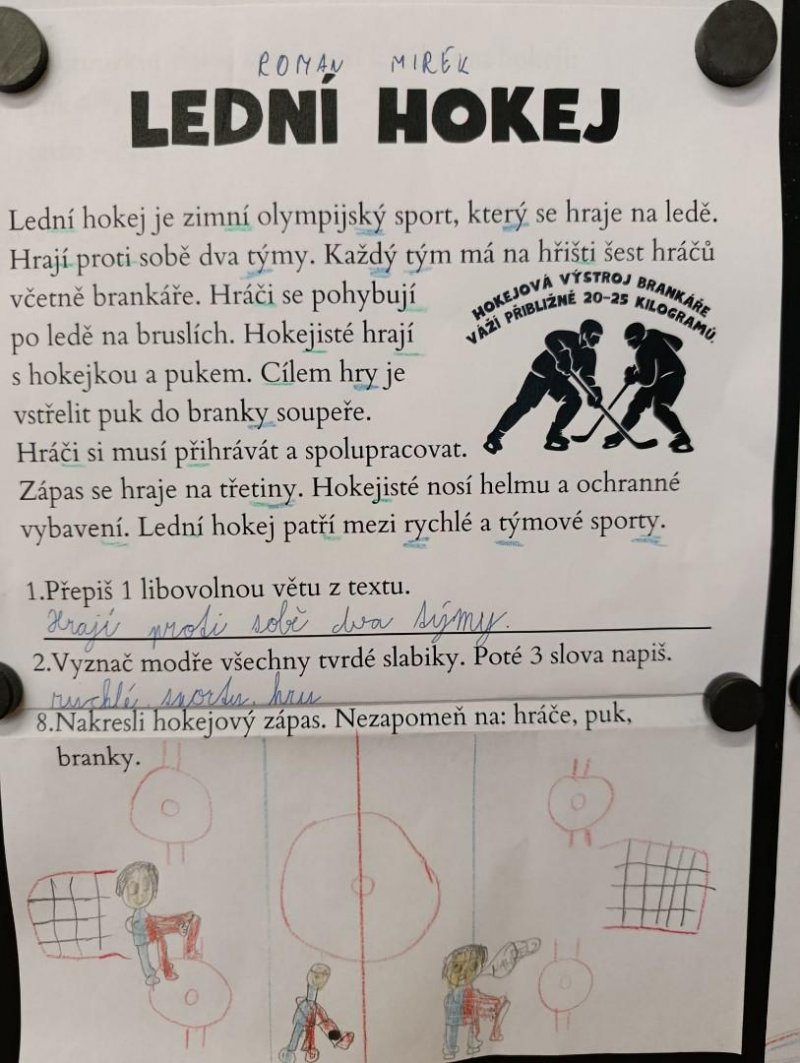 ROMAN MIREK
LEDNÍ HOKEJ
Lední hokej je zimní olympijský sport, který se hraje na ledě.
Hrají proti sobě dva týmy. Každý tým má na hřišti šest hráčů
včetně brankáře. Hráči se pohybují
po ledě na bruslích. Hokejisté hrají
s hokejkou a pukem. Cílem hry je
vstřelit puk do branky soupeře.
Hráči si musí přihrávát a spolupracovat.
Zápas se hraje na třetiny. Hokejisté nosí helmu a ochranné
vybavení. Lední hokej patří mezi rychlé a týmové sporty.
HOKEJOVÁ VÝSTROJ BRANKÁŘE
VÁŽÍ PŘIBLIŽNĚ 20-25 KILOGRAMŮ.
1.Přepiš 1 libovolnou větu z textu.
Hrají proti sobě dva týmy.
2.Vyznač modře všechny tvrdé slabiky. Poté 3 slova napiš.
rychlé, sporty, hry
8.Nakresli hokejový zápas. Nezapomeň na: hráče, puk,
branky.